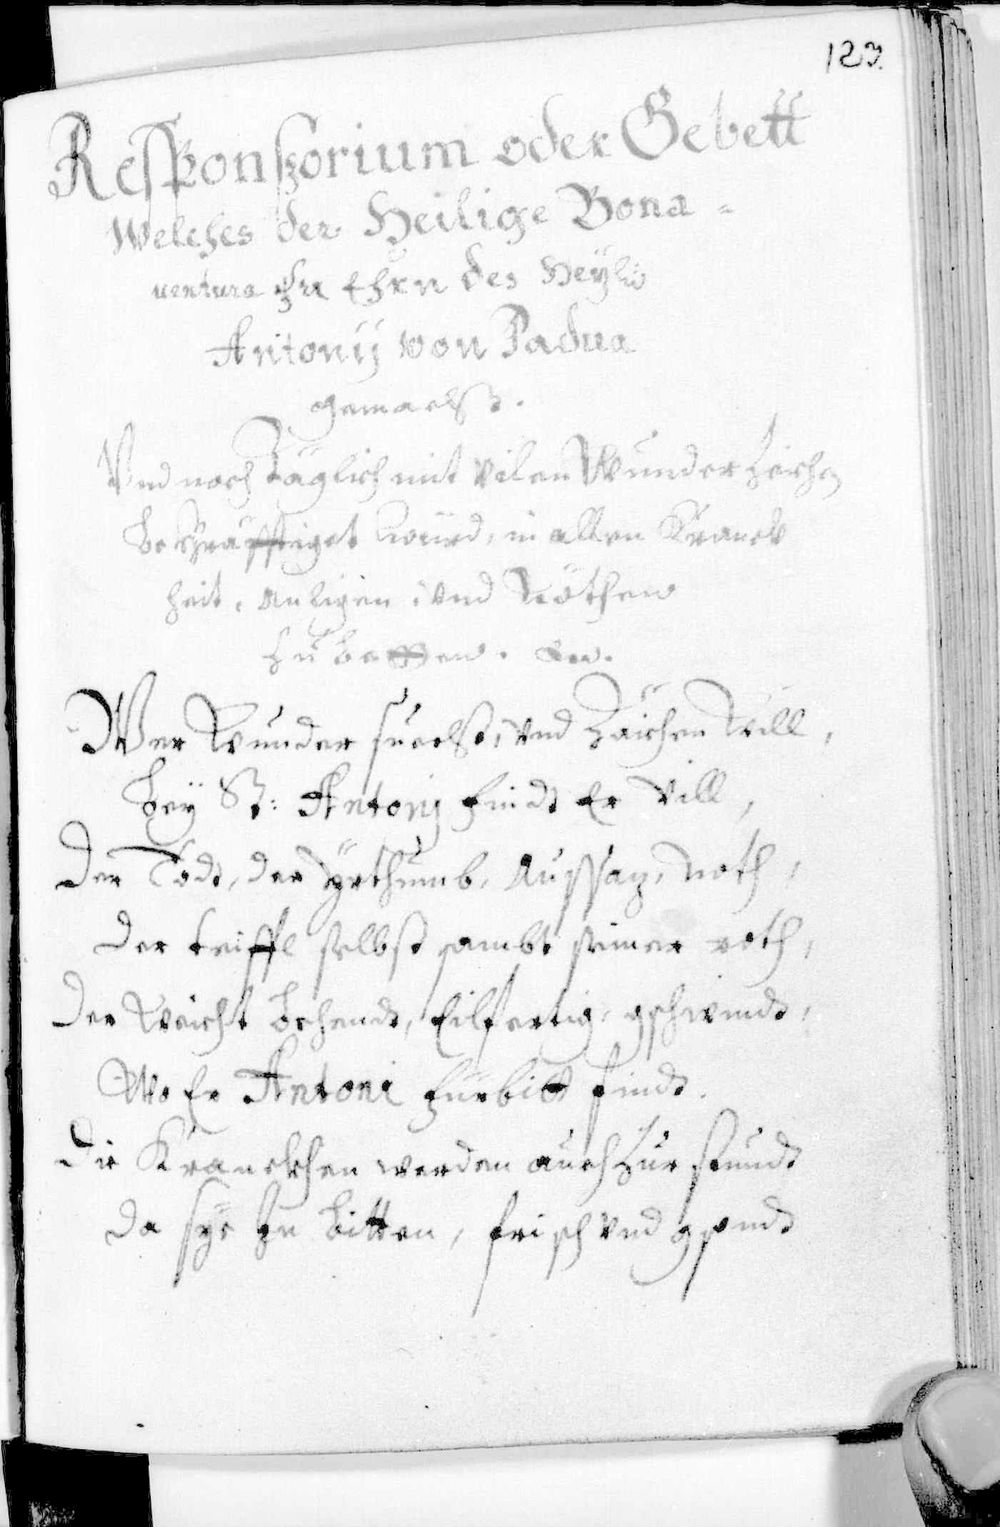 123.
Responsorium oder Gebett
Welches der Heilige Bona-
uentura zu Ehrn des Heylig
Antonij von Padua
gemacht.
Vnd noch Täglich mit vilen Wunderzeichen
bekräfftiget würd, in allen Kranck
heit, anligen, vnd Nöthen
zu betten.
Wer Wunder suecht, vnd Zaichen Will,
Bey St: Antonj findt Er vill,
Der Todt, der Yrthumb, Aussatz, Noth,
der teiffl selbst sambt seiner roth,
Der Weicht behendt, Eilfertig, gschwindt,
Wo Er Antoni fürbitt findt.
Die Kranckhen werden auch Zur stundt
da sye Jn bitten, frisch vnd gsundt